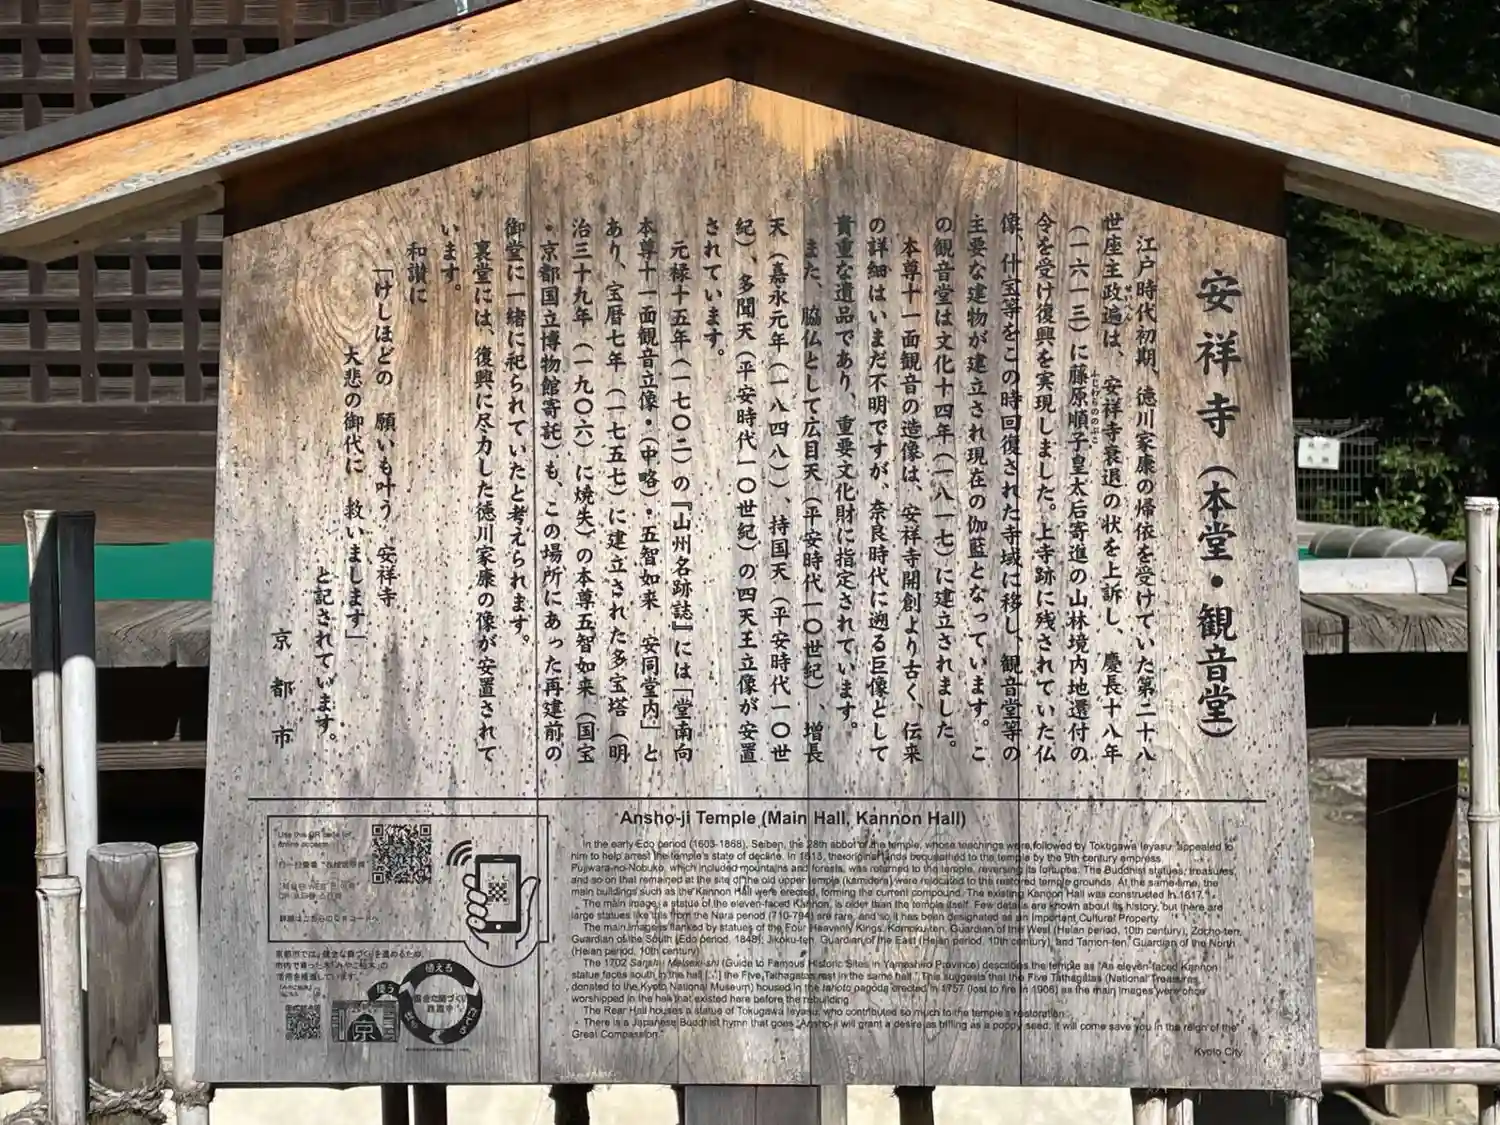 安祥寺（本堂・観音堂）
江戸時代初期、徳川家康の帰依を受けていた第二十八
世座主政遍は、安祥寺衰退の状を上訴し、慶長十八年
せいへん
（一六一三）に藤原順子皇太后寄進の山林境内地還付の
ふじわらののぶこ
令を受け復興を実現しました。上寺跡に残されていた仏
像、什宝等をこの時回復された寺域に移し、観音堂等の
主要な建物が建立され現在の伽藍となっています。こ
の観音堂は文化十四年（一八一七）に建立されました。
本尊十一面観音の造像は、安祥寺開創より古く、伝来
の詳細はいまだ不明ですが、奈良時代に遡る巨像として
貴重な遺品であり、重要文化財に指定されています。
また、脇仏として広目天（平安時代一〇世紀）、増長
天（嘉永元年（一八四八））、持国天（平安時代一〇世
紀）、多聞天（平安時代一〇世紀）の四天王立像が安置
されています。
元禄十五年（一七〇二）の『山州名跡誌』には「堂南向
本尊十一面観音立像・（中略）・五智如来　安同堂内」と
あり、宝暦七年（一七五七）に建立された多宝塔（明
治三十九年（一九〇六）に焼失）の本尊五智如来（国宝
・京都国立博物館寄託）も、この場所にあった再建前の
御堂に一緒に祀られていたと考えられます。
裏堂には、復興に尽力した徳川家康の像が安置されて
います。
和讃に
「けしほどの　願いも叶う　安祥寺
大悲の御代に　救いまします」
と記されています。
京都市
Ansho-ji Temple (Main Hall, Kannon Hall)
In the early Edo period (1603-1868), Seihen, the 28th abbot of the temple, whose teachings were followed by Tokugawa Ieyasu, appealed to
him to help arrest the temple's state of decline. In 1613, the original lands bequeathed to the temple by the 9th century empress,
Fujiwara-no-Nobuko, which included mountains and forests, was returned to the temple, reversing its fortunes. The Buddhist statues, treasures,
and so on that remained at the site of the old upper temple (kamidera) were relocated to the restored temple grounds. At the same time, the
main buildings such as the Kannon Hall were erected, forming the current compound. The existing Kannon Hall was constructed in 1817.
The main image, a statue of the eleven-faced Kannon, is older than the temple itself. Few details are known about its history, but there are
large statues like this from the Nara period (710-794) are rare, and so it has been designated as an Important Cultural Property.
The main image is flanked by statues of the Four Heavenly Kings: Komoku-ten, Guardian of the West (Heian period, 10th century), Zocho-ten,
Guardian of the South (Edo period, 1848), Jikoku-ten, Guardian of the East (Heian period, 10th century), and Tamon-ten, Guardian of the North
(Heian period, 10th century).
The 1702 Sanshi Meiseki-shi (Guide to Famous Historic Sites in Yamashiro Province) describes the temple as "An eleven-faced Kannon
statue faces south in the hall [...] the Five Tathagatas rest in the same hall." This suggests that the Five Tathagatas (National Treasures,
donated to the Kyoto National Museum) housed in the tahoto pagoda erected in 1757 (lost to fire in 1906) as the main images were once
worshipped in the hall that existed here before the rebuilding.
The Rear Hall houses a statue of Tokugawa Ieyasu, who contributed so much to the temple's restoration.
There is a Japanese Buddhist hymn that goes "Ansho-ji will grant a desire as trifling as a poppy seed; it will come save you in the reign of the
Great Compassion."
Kyoto City
Use this QR code for
online access
詳細はこちらのQRコードへ
京都市では、健全な森づくりを進めるため、
市内で育った木「みやこ杣木」の
活用を推進しています。
植える
使う
京